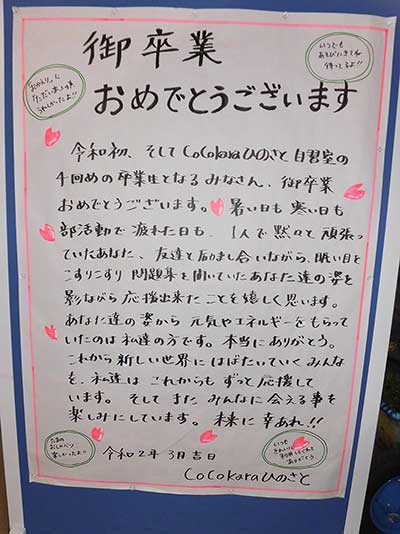 御卒業
おめでとうございます
「おかえり」と
「ただいま」の声
うれしかったよ!!
いつでも
あそびにきてね
待ってるよ!!
令和初、そしてCoCoKaraひのさと自習室の
4回めの卒業生となるみなさん、御卒業
おめでとうございます。暑い日も寒い日も
部活動で疲れた日も、1人で黙々と頑張っ
ていたあなた、友達と励まし合いながら、眠い目を
こすりこすり問題集を開いていたあなた達の姿を
影ながら応援出来たことを嬉しく思います。
あなた達の姿から元気やエネルギーをもらって
いたのは私達の方です。本当にありがとう。
これから新しい世界にはばたいていくみんな
を、私達はこれからもずっと応援して
います。そしてまたみんなに会える事を
楽しみにしています。未来に幸あれ!!
令和2年3月吉日
CoCoKaraひのさと
たまの
おしゃべり
楽しかったよ!!
いつも
きれいに
利用してくれて
ありがとう